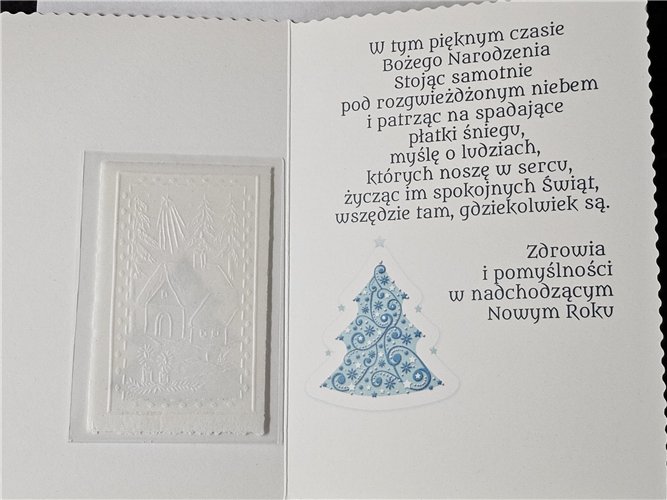 W tym pięknym czasie
Bożego Narodzenia
Stojąc samotnie
pod rozgwieżdżonym niebem
i patrząc na spadające
płatki śniegu,
myślę o ludziach,
których noszę w sercu,
życząc im spokojnych Świąt,
wszędzie tam, gdziekolwiek są.
Zdrowia
i pomyślności
w nadchodzącym
Nowym Roku